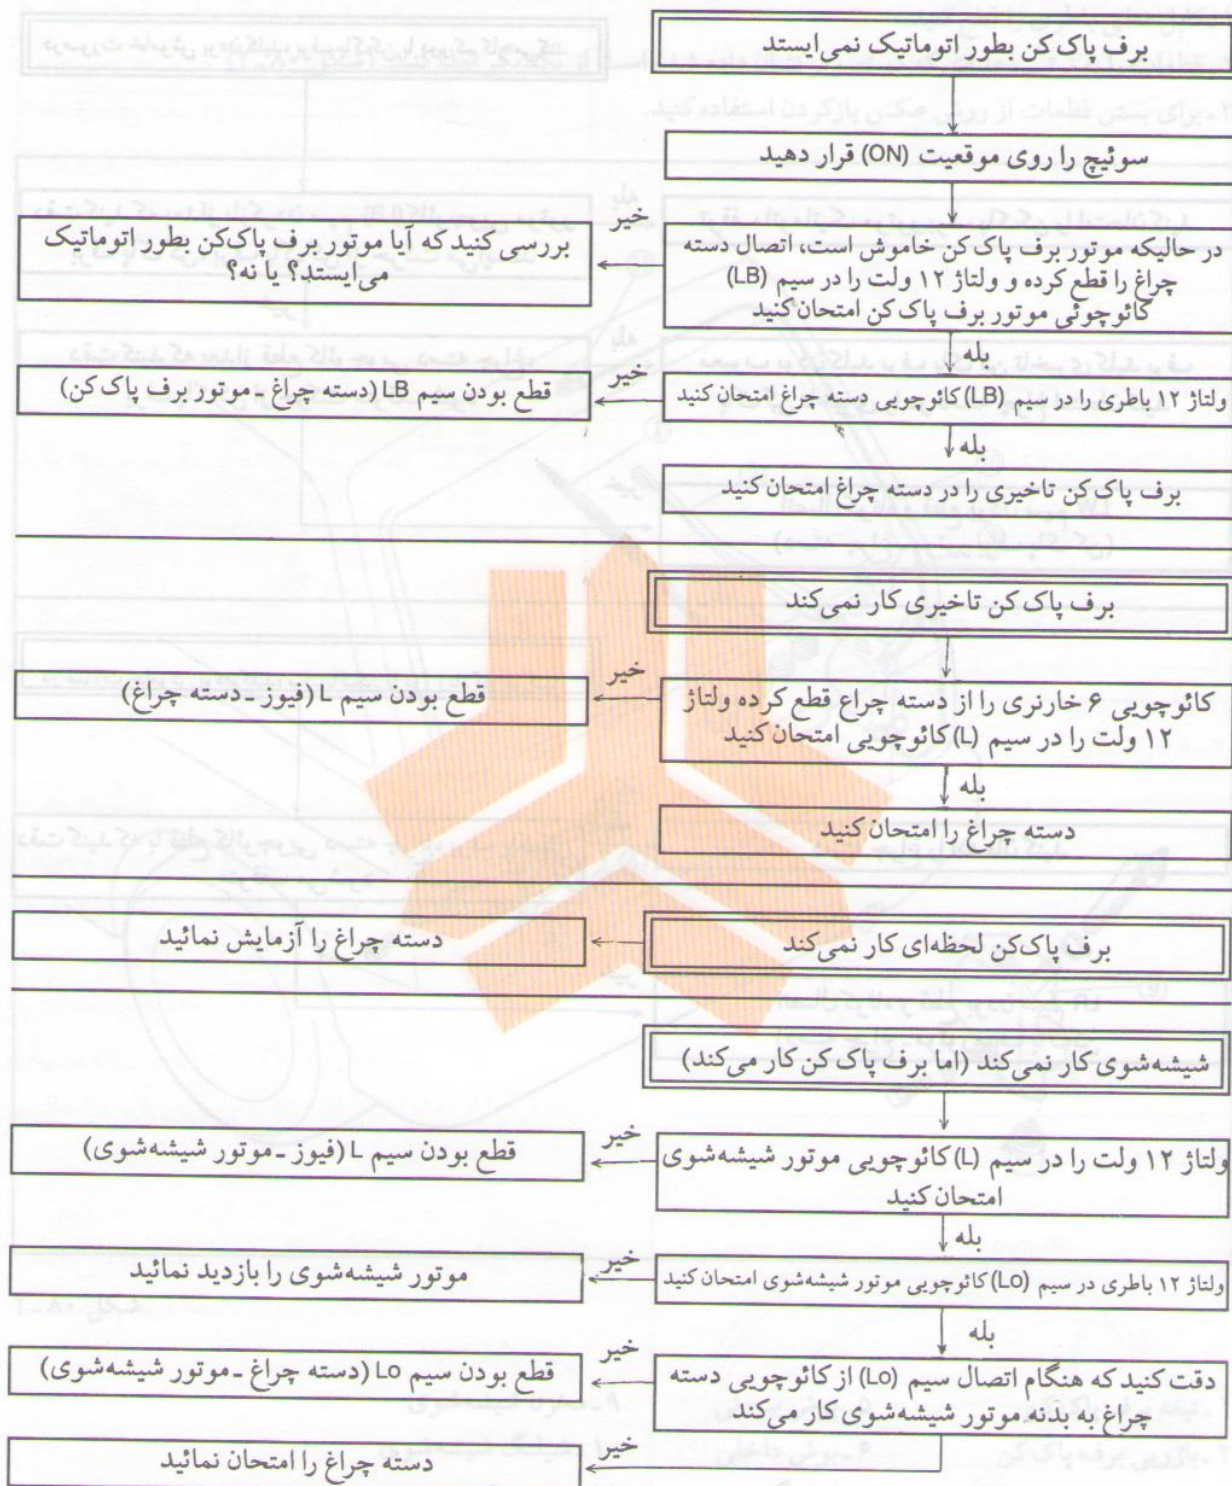 برف پاک کن بطور اتوماتیک نمی‌ایستد
سوئیچ را روی موقعیت (ON) قرار دهید
در حالیکه موتور برف پاک کن خاموش است، اتصال دسته
چراغ را قطع کرده و ولتاژ ۱۲ ولت را در سیم (LB)
کائوچوئی موتور برف پاک کن امتحان کنید
خیر
بررسی کنید که آیا موتور برف پاک‌کن بطور اتوماتیک
می‌ایستد؟ یا نه؟
بله
ولتاژ ۱۲ باطری را در سیم (LB) کائوچویی دسته چراغ امتحان کنید
خیر
قطع بودن سیم LB (دسته چراغ ـ موتور برف پاک کن)
بله
برف پاک کن تاخیری را در دسته چراغ امتحان کنید
برف پاک کن تاخیری کار نمی‌کند
کائوچویی ۶ خارنری را از دسته چراع قطع کرده ولتاژ
۱۲ ولت را در سیم (L) کائوچویی امتحان کنید
خیر
قطع بودن سیم L (فیوز ـ دسته چراغ)
بله
دسته چراغ را امتحان کنید
برف پاک‌کن لحظه‌ای کار نمی‌کند
دسته چراغ را آزمایش نمائید
شیشه‌شوی کار نمی‌کند (اما برف پاک کن کار می‌کند)
ولتاژ ۱۲ ولت را در سیم (L) کائوچویی موتور شیشه‌شوی
امتحان کنید
خیر
قطع بودن سیم L (فیوز ـ موتور شیشه‌شوی)
بله
ولتاژ ۱۲ باطری در سیم (Lo) کائوچویی موتور شیشه‌شوی امتحان کنید
خیر
موتور شیشه‌شوی را بازدید نمائید
بله
دقت کنید که هنگام اتصال سیم (Lo) از کائوچویی دسته
چراغ به بدنه موتور شیشه‌شوی کار می‌کند
خیر
قطع بودن سیم Lo (دسته چراغ ـ موتور شیشه‌شوی)
خیر
دسته چراغ را امتحان نمائید